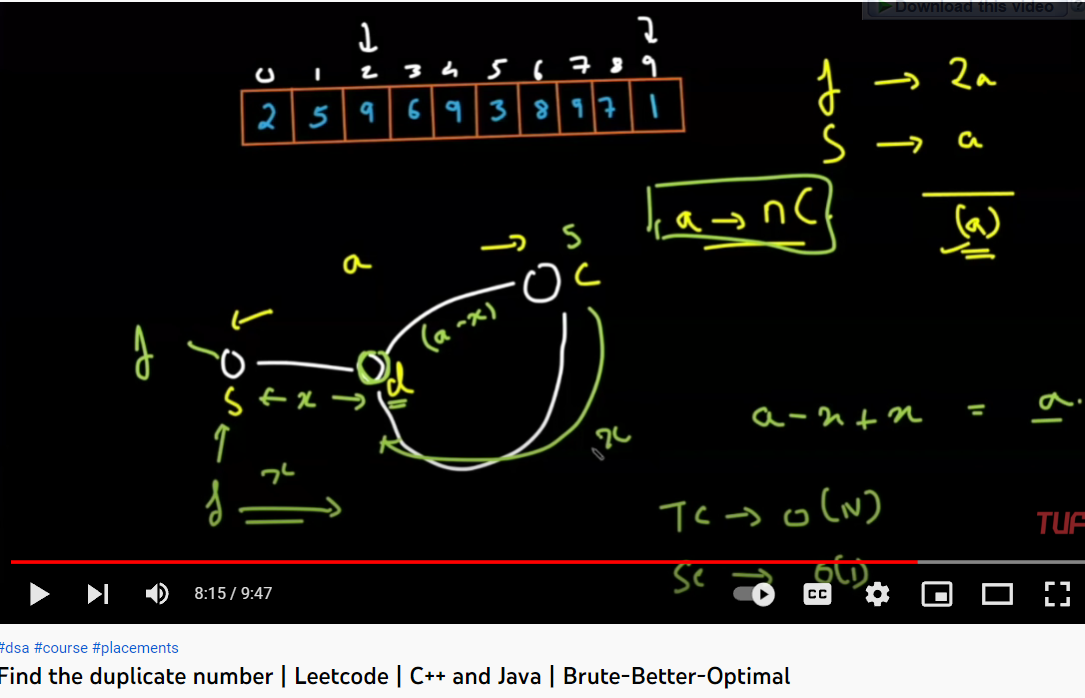 Download this video
0 1 2 3 4 5 6 7 8 9
2 5 9 6 9 3 8 9 7 1
f → 2a
S → a
(a)
a → nC
a
S
C
(a-x)
f
S ← x → d
x
f
x
a-x+x = a.
TC → O(N)
SC → O(1)
TUF
8:15 / 9:47
CC
#dsa #course #placements
Find the duplicate number | Leetcode | C++ and Java | Brute-Better-Optimal